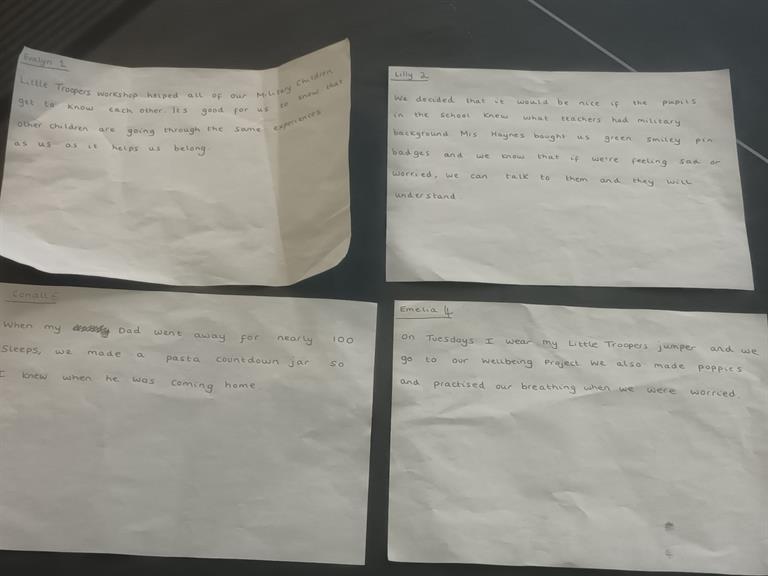 Evalyn 1
Little Troopers workshop helped all of our Military Children
get to know each other. Its good for us to know that
other children are going through the same experiences
as us as it helps us belong.
Lilly 2
We decided that it would be nice if the pupils
in the school knew what teachers had military
background Mis Haynes bought us green smiley pin
badges and we know that if we're feeling sad or
worried, we can talk to them and they will
understand.
Conall
When my Dad went away for nearly 100
Sleeps, we made a pasta countdown jar so
I knew when he was coming home
Emelia 4
On Tuesdays I wear my Little Troopers jumper and we
go to our wellbeing project We also made poppies
and practised our breathing when we were worried.